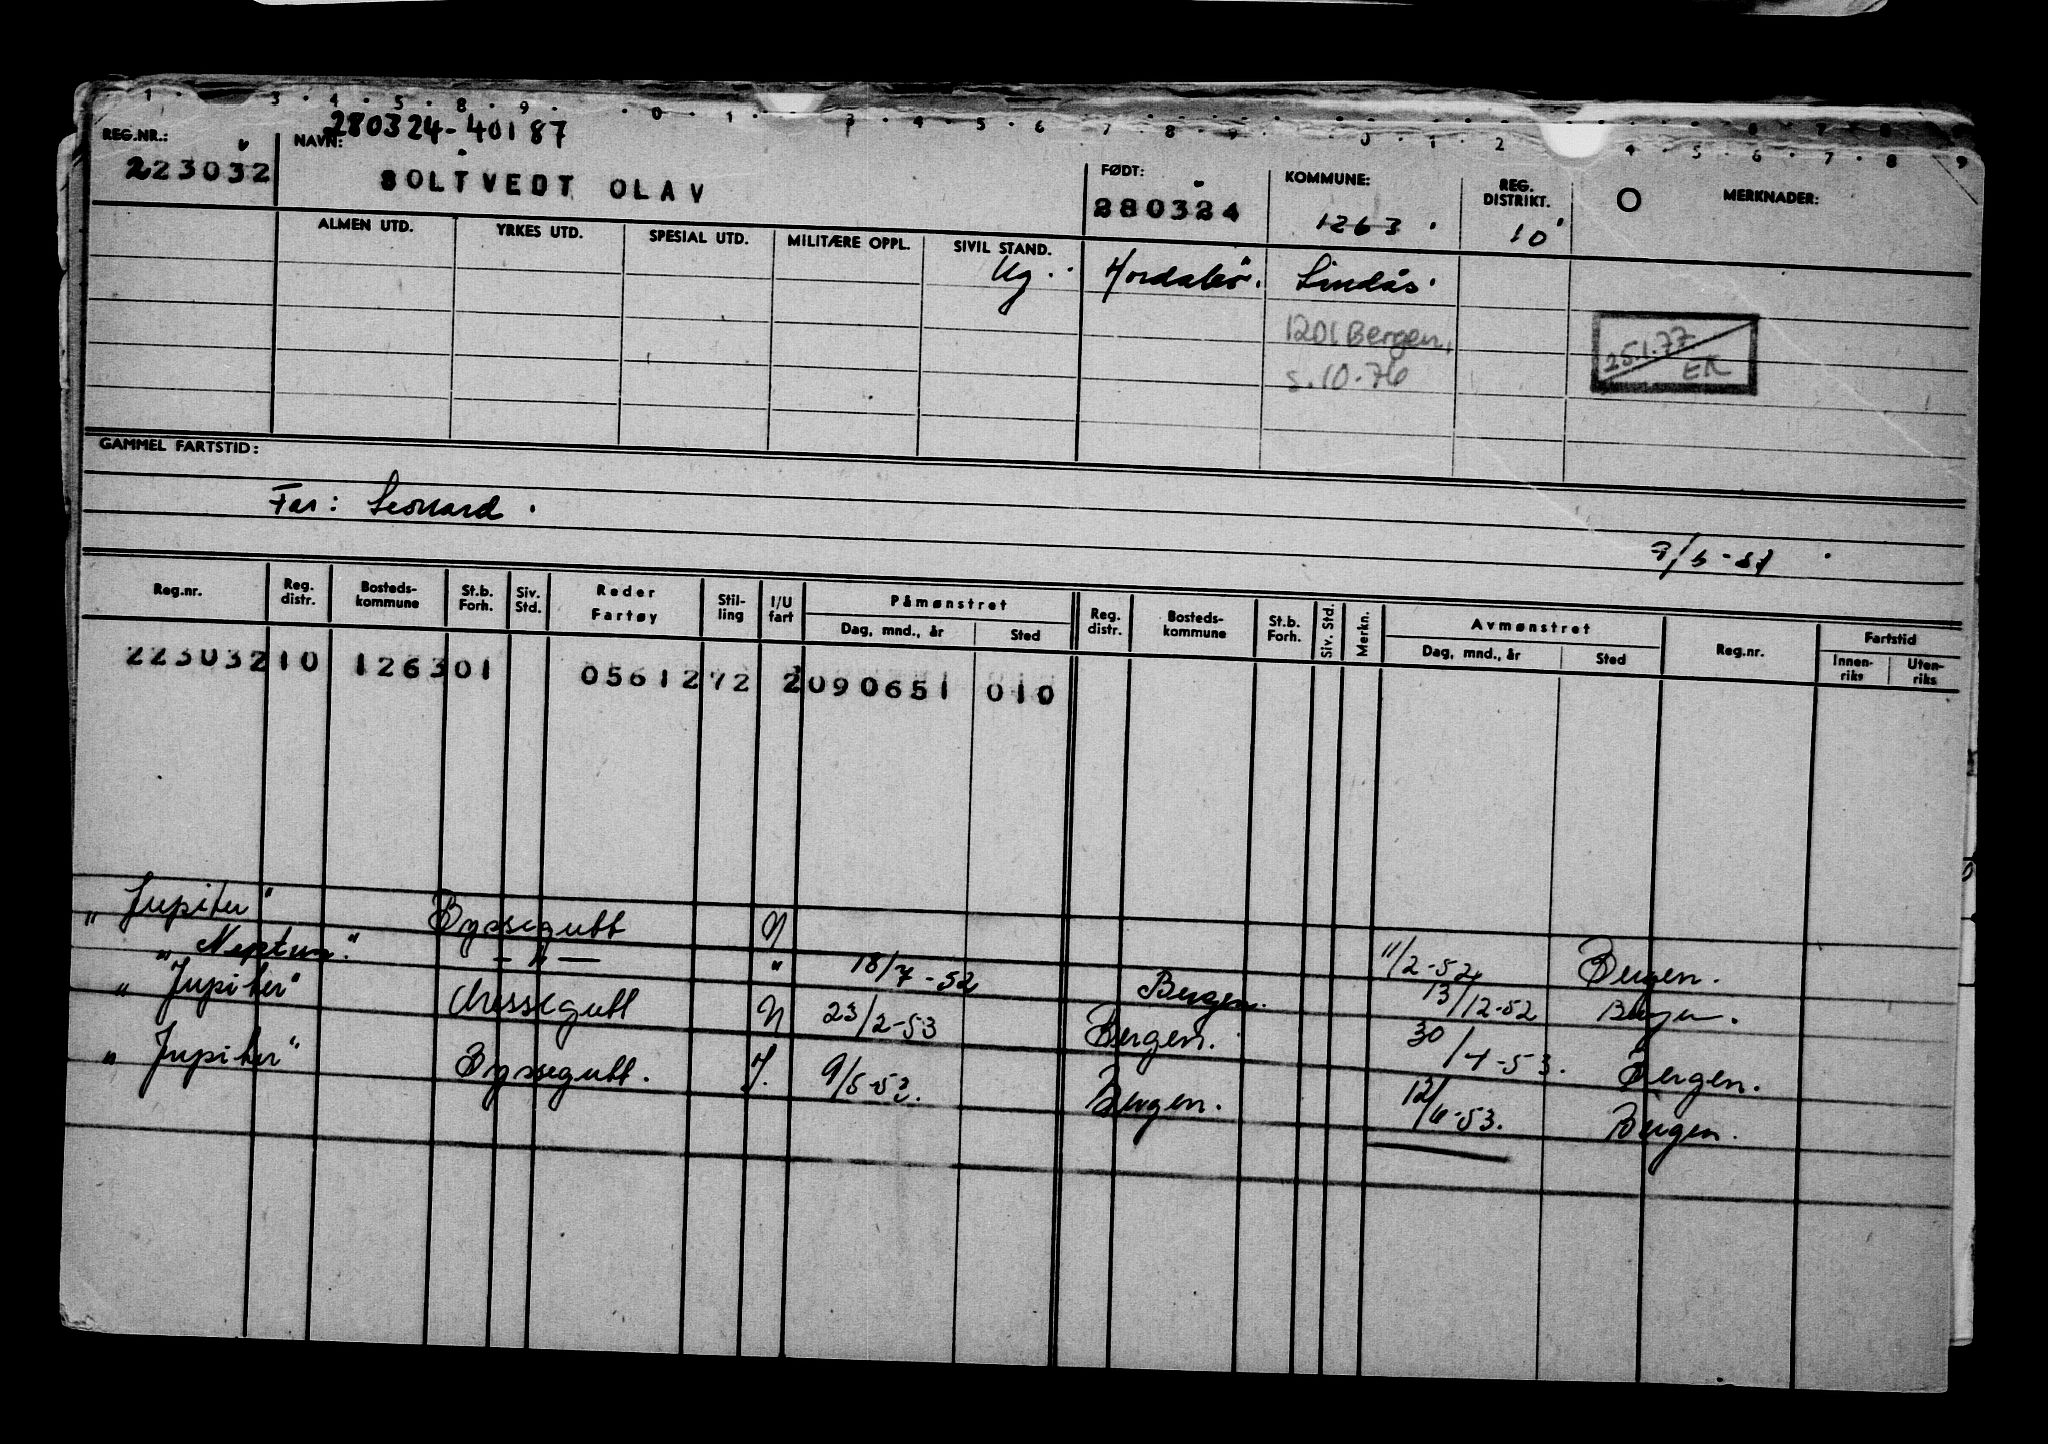 1 · 3 · 4 · 5 · 8 · 9 · 0 · 1 · 3 · 4 · 5 · 6 · 7 · 8 · 9 · 0 · 1 · 2 · 4 · 5 · 6 · 7 · 8 · 9
280324-40187
REG.NR.: NAVN: FØDT: KOMMUNE: REG. DISTRIKT. MERKNADER:
223032 BOLTVEDT OLAV 280324 1263 10
ALMEN UTD. YRKES UTD. SPESIAL UTD. MILITÆRE OPPL. SIVIL STAND.
Ug. Hordabø. Lindås.
1201 Bergen,
s. 10.76
25.1.77
ER
GAMMEL FARTSTID:
Far: Leonard.
Reg.nr. Reg. distr. Bosteds-kommune St.b. Forh. Siv. Std. Reder Fartøy Stil-ling I/U fart Påmønstret Reg. distr. Bosteds-kommune St.b. Forh. Siv. Std. Merkn. Avmønstret Reg.nr. Fartstid
Dag, mnd., år Sted Dag, mnd., år Sted Innen-riks Uten-riks
223032 10 1263 01 05612 72 2 090651 010
"Jupiter" Byssegutt N 11/2-52 Bergen.
"Neptun." -"- " 18/7-52 Bergen. 13/12-52 Bergen.
"Jupiter" Messegutt N 23/2-53 Bergen. 30/4-53. Bergen.
"Jupiter" Byssegutt. 9/5-53. Bergen. 12/6-53. Bergen.